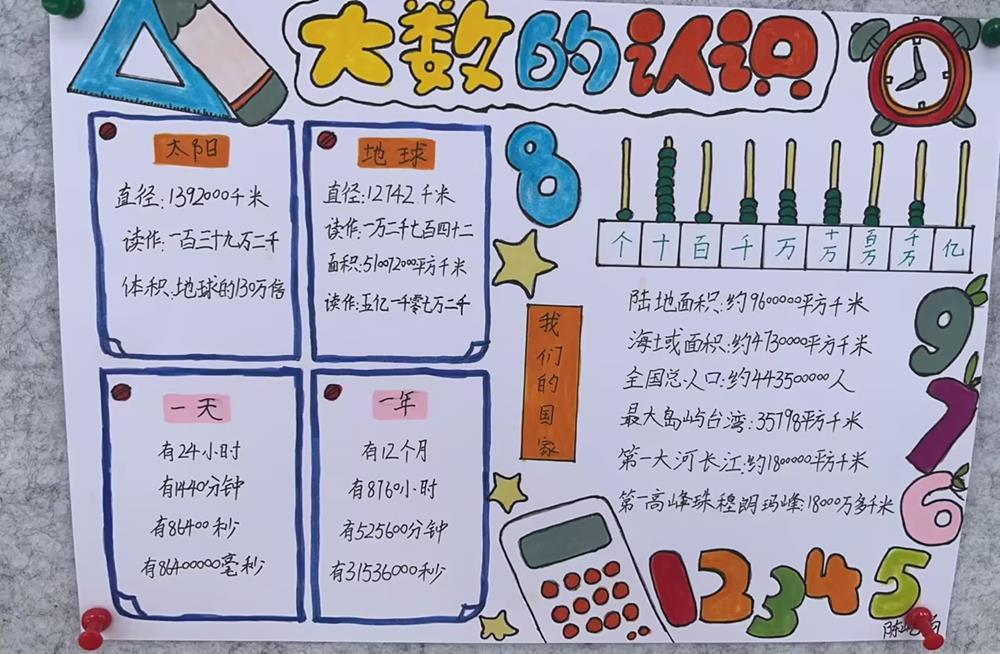 大数的认识
太阳
直径:1392000千米
读作:一百三十九万二千
体积:地球的130万倍
地球
直径:12742千米
读作:一万二千七百四十二
面积:510072000平方千米
读作:五亿一千零七万二千
一天
有24小时
有1440分钟
有86400秒
有86400000毫秒
一年
有12个月
有8760小时
有525600分钟
有31536000秒
8
个 十 百 千 万 十万 百万 千万 亿
我们的国家
陆地面积:约9600000平方千米
海域面积:约4730000平方千米
全国总人口:约443500000人
最大岛屿台湾:35798平方千米
第一大河长江:约1800000平方千米
第一高峰珠穆朗玛峰:18000万多千米
9
7
6
1 2 3 4 5